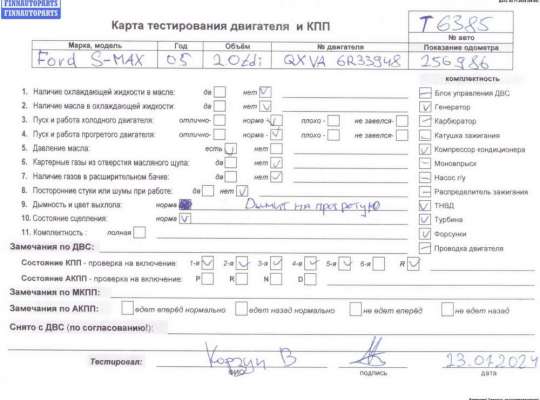 FINNAUTOPARTS
FINNAUTOPARTS
Карта тестирования двигателя и КПП
T 6385
№ авто
Марка, модель Год Объём № двигателя Показание одометра
Ford S-MAX 05 2.0tdi QXVA 6R33948 256986
комплектность
1. Наличие охлаждающей жидкости в масле: да нет Блок управления ДВС
2. Наличие масла в охлаждающей жидкости: да нет Генератор
3. Пуск и работа холодного двигателя: отлично- норма - плохо - не завелся- Карбюратор
4. Пуск и работа прогретого двигателя: отлично- норма - плохо - не завелся- Катушка зажигания
5. Давление масла: есть нет Компрессор кондиционера
6. Картерные газы из отверстия масляного щупа: да нет Моновпрыск
7. Наличие газов в расширительном бачке: да нет Насос г/у
8. Посторонние стуки или шумы при работе: да нет Распределитель зажигания
9. Дымность и цвет выхлопа: норма Дымит на прогретую ТНВД
10. Состояние сцепления: норма Турбина
11. Комплектность : полная Форсунки
Проводка двигателя
Замечания по ДВС:
Состояние КПП - проверка на включение: 1-я 2-я 3-я 4-я 5-я 6-я R
Состояние АКПП - проверка на включение: P R N D
Замечания по МКПП:
Замечания по АКПП: едет вперёд нормально едет назад нормально не едет вперёд не едет назад
Снято с ДВС (по согласованию!):
Тестировал: Корзун В 23.01.2024
ФИО подпись дата